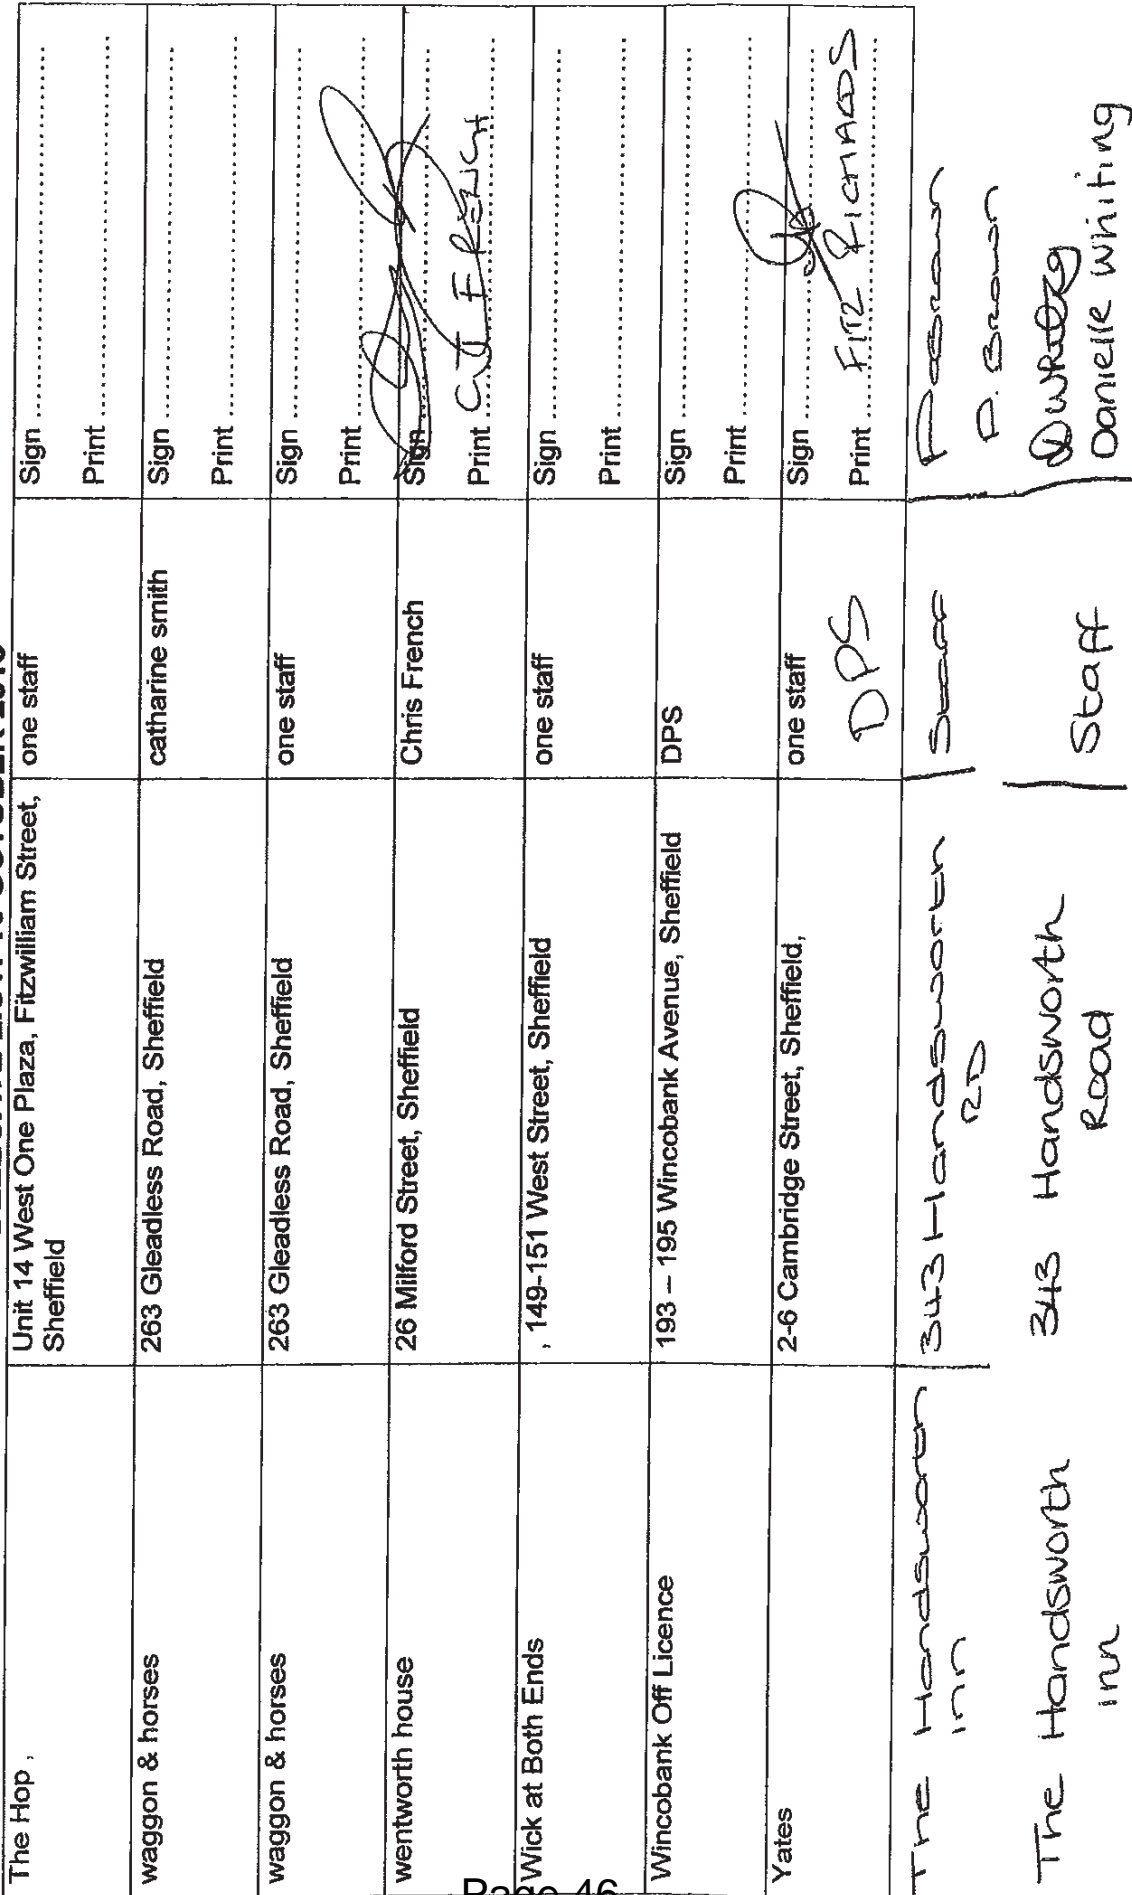 The Hop ,
Unit 14 West One Plaza, Fitzwilliam Street,
Sheffield
one staff
Sign ..........
Print ..........
waggon & horses
263 Gleadless Road, Sheffield
catharine smith
Sign ..........
Print ..........
waggon & horses
263 Gleadless Road, Sheffield
one staff
Sign ..........
Print ..........
wentworth house
26 Milford Street, Sheffield
Chris French
Sign ..........
Print CJ FRENCH
Wick at Both Ends
, 149-151 West Street, Sheffield
one staff
Sign ..........
Print ..........
Wincobank Off Licence
193 – 195 Wincobank Avenue, Sheffield
DPS
Sign ..........
Print ..........
Yates
2-6 Cambridge Street, Sheffield,
one staff
DPS
Sign ..........
Print FITZ RICHARDS
The Handsworth
inn
343 Handsworth
RD
Staff
P Brown
P. Brown
The Handsworth
inn
343 Handsworth
Road
Staff
Danielle Whiting
Page 46